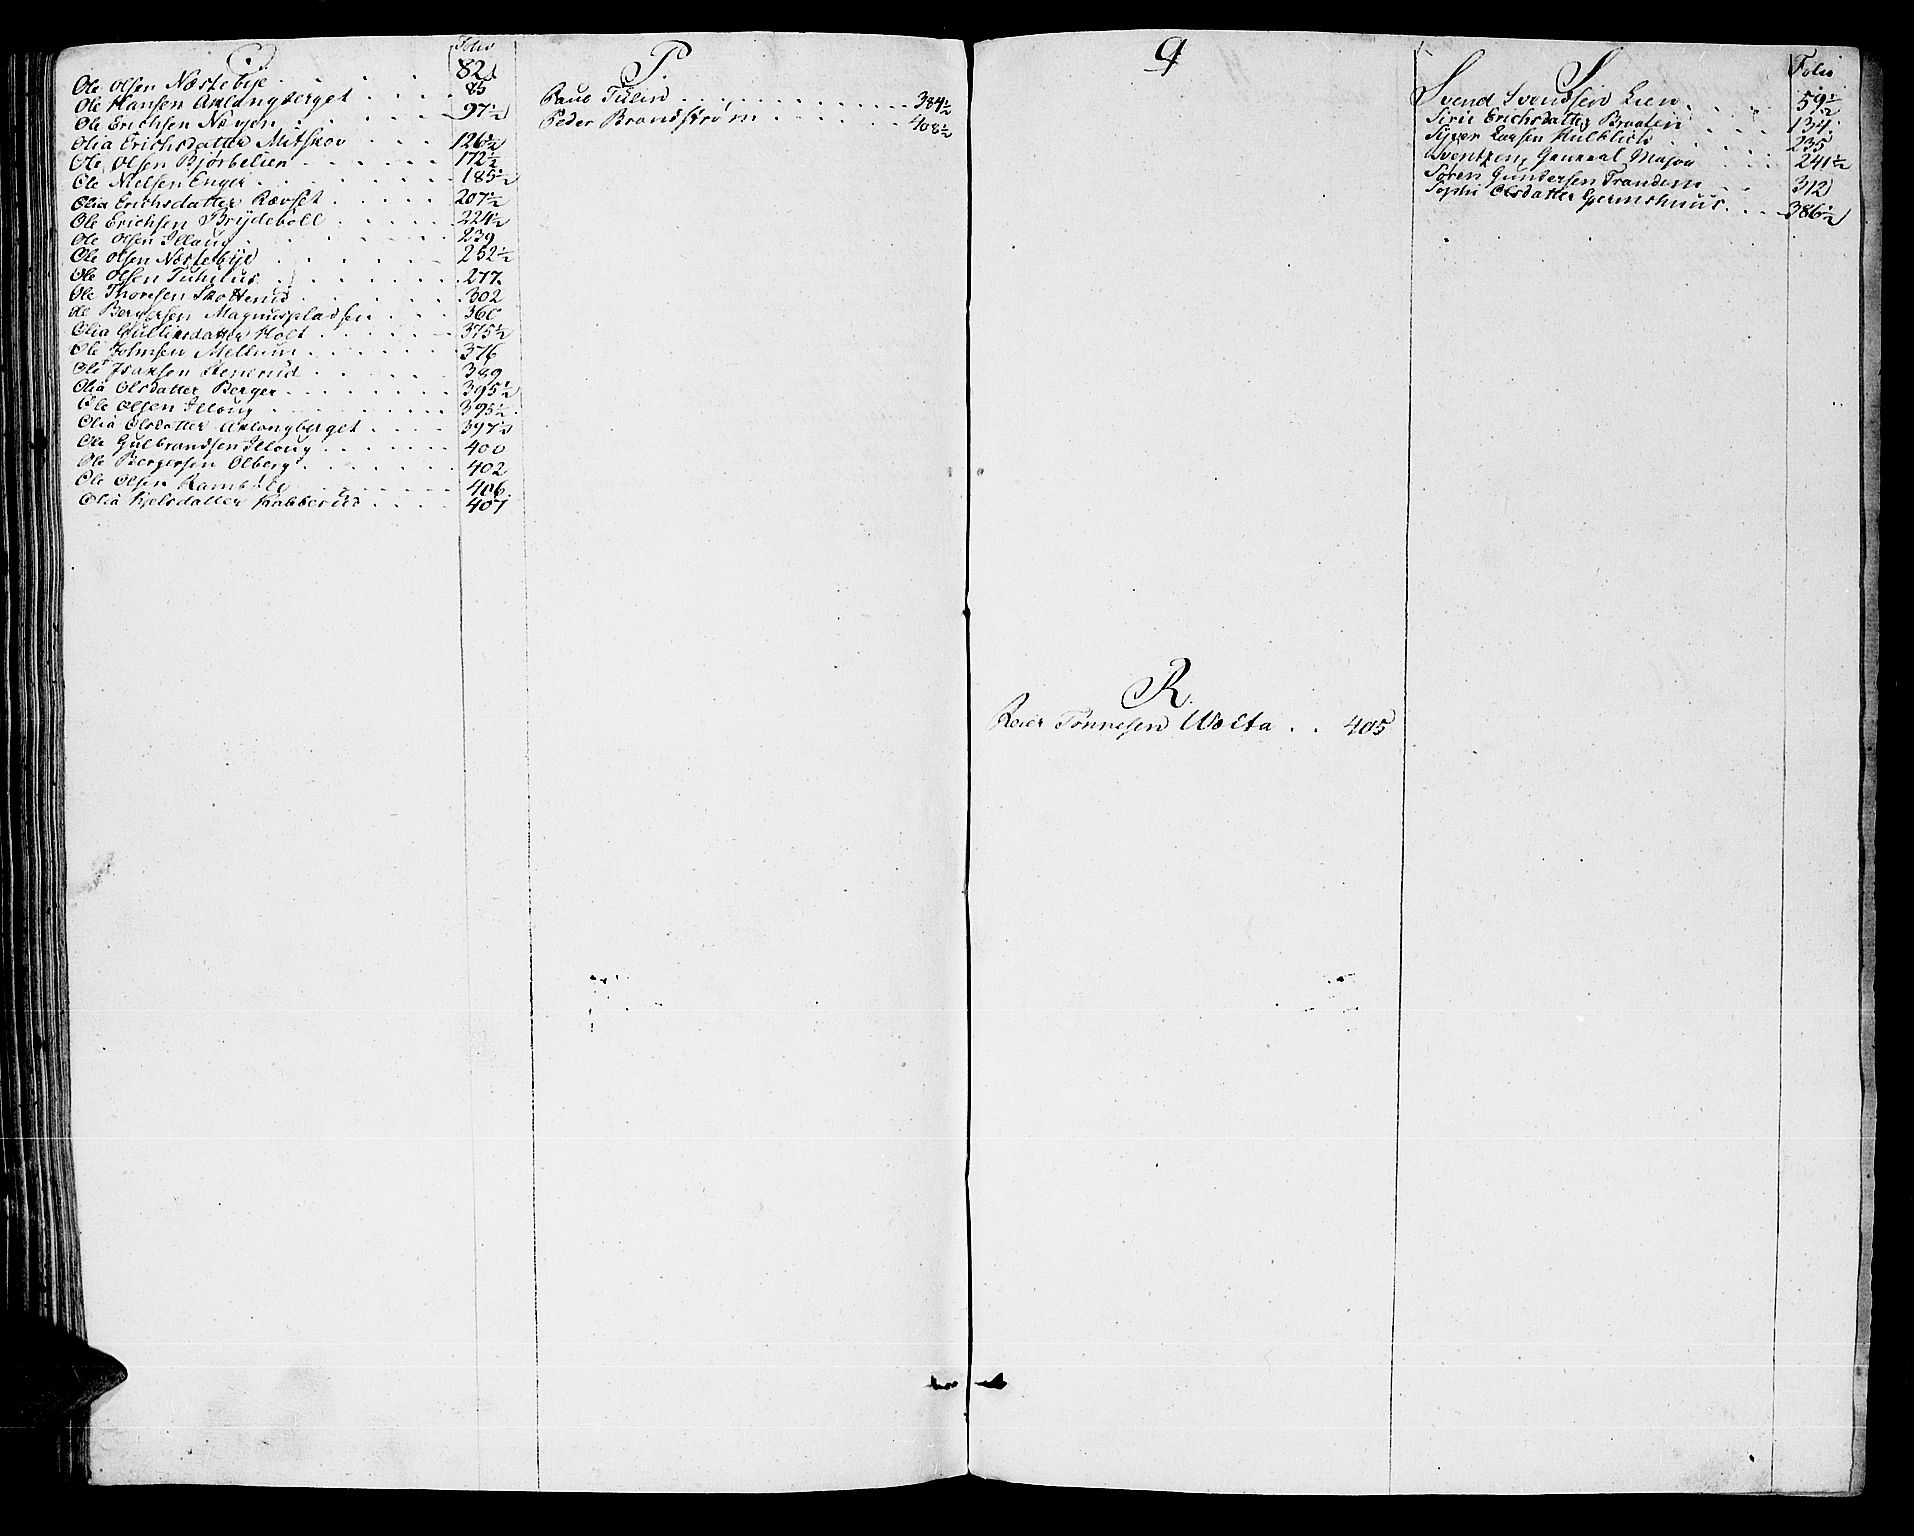 O Folio
Ole Olsen Næstebÿe . . . . . 82
Ole Hansen Aklangberget . . . . 85
Ole Erichsen Næmsen . . . . . 97½
Olia Erichsdatter Mitskov . . . . 126½
Ole Olsen Bjørbelien . . . . . 172½
Ole Nielsen Enger . . . . . . 185½
Olia Erichsdatter Rævset . . . . 207½
Ole Erichsen Brÿdeboll . . . . . 224½
Ole Olsen Illoug . . . . . . 239
Ole Olsen Næstebÿe . . . . . 252½
Ole Olsen Tuhuus . . . . . 277
Ole Thoresen Skotterud . . . . . 302
Ole Bergersen Magnuspladsen . . . 360
Olia Gulliksdatter Holt . . . . . 375½
Ole Johnsen Mellum . . . . . 376
Ole Isaksen Stenerud . . . . . 389
Olia Olsdatter Berger . . . . . 395½
Ole Olsen Illoug . . . . . . 395½
Olia Olsdatter Aklangberget . . . . 397½
Ole Gulbrandsen Illoug . . . . . 400
Ole Bergersen Olberg . . . . . 402
Ole Olsen . . . . . 406
Olia Kjelsdatter Kabberud . . . . 407
P
Paul Tulin . . . . . . . . . . 384½
Peder Brandstrøm . . . . . . . 408½
Q
R
Reier Tønnesen Wolta . . 405
S Folio
Svend Svendsen Lien . . . . . 59½
Sirie Erichsdatter Braaten . . . 134
Sÿver Larsen Hulblich . . . . . 235
General Major . . . 241½
Søren Gundersen Trandem . . 312
Sophi Olsdatter Germshuus . . . 386½